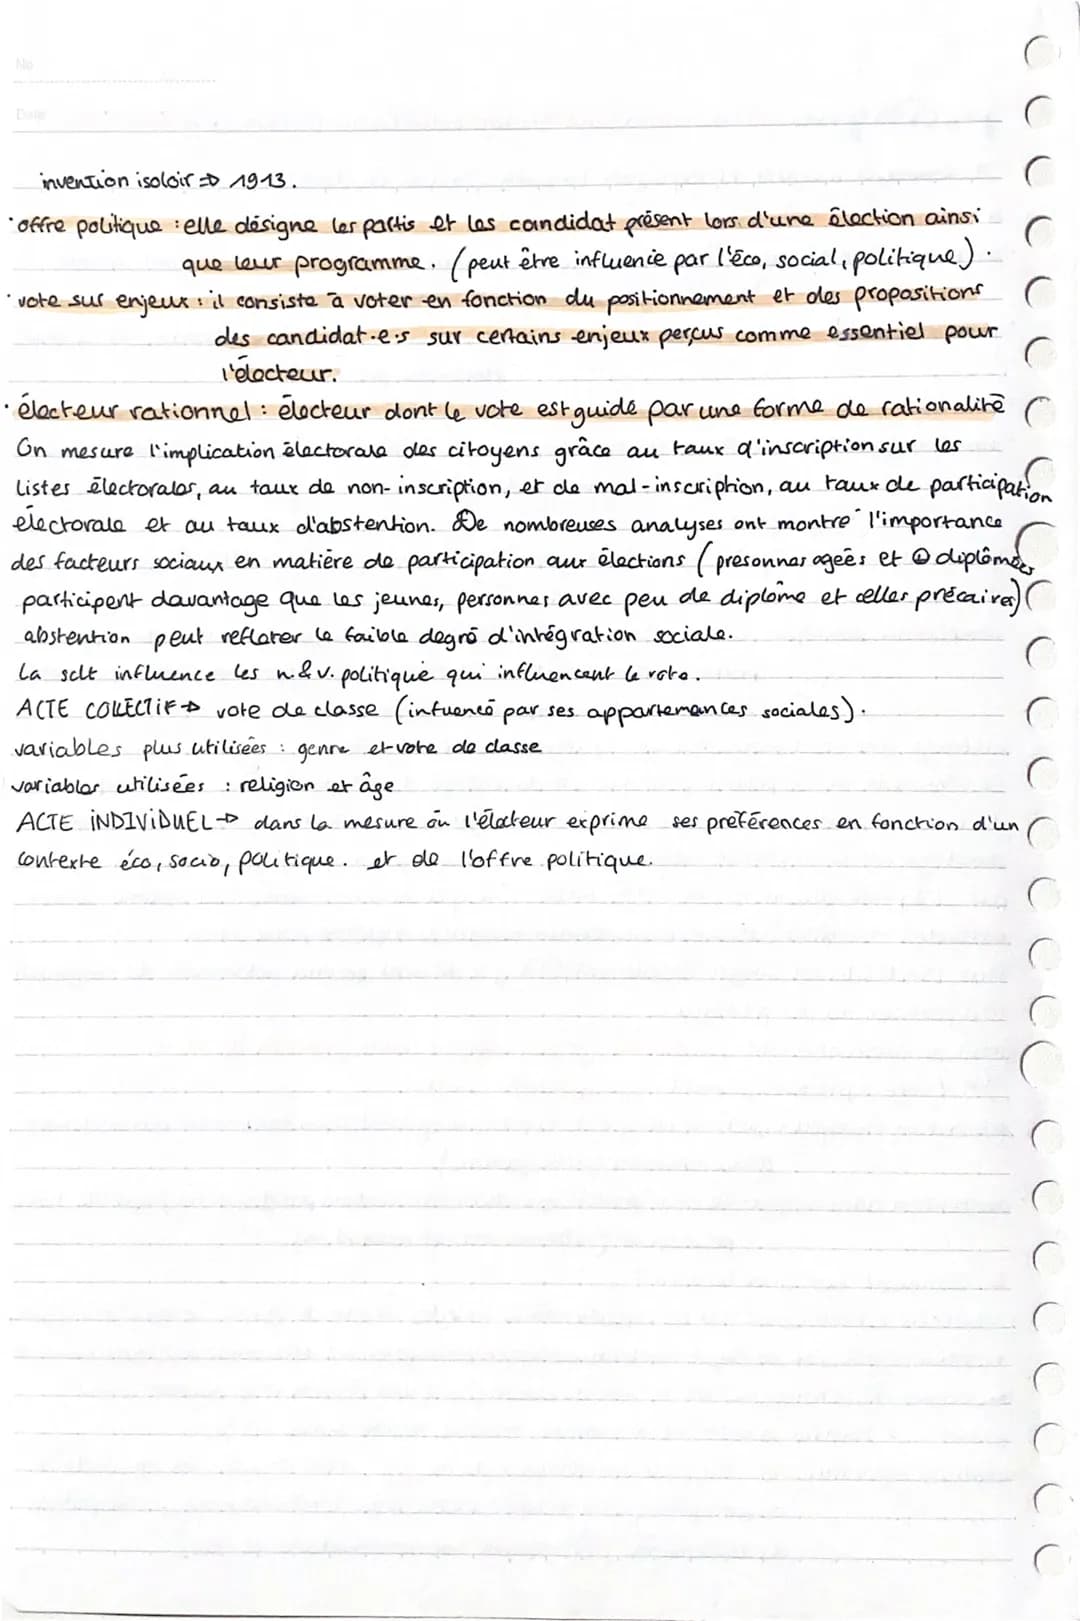 No
Date
invention isoloir => 1913.
• offre politique : elle désigne les partis et les candidat présent lors d'une élection ainsi
que leur programme. (peut être influencié par l'éco, social, politique).
• vote sur enjeux : il consiste à voter en fonction du positionnement et des propositions
des candidat.e.s sur certains enjeux perçus comme essentiel pour
l'électeur.
• électeur rationnel : électeur dont le vote est guidé par une forme de rationalité
On mesure l'implication électorale des citoyens grâce au taux d'inscription sur les
listes électorales, au taux de non-inscription, et de mal-inscription, au taux de participation
électorale et au taux d'abstention. De nombreuses analyses ont montré l'importance
des facteurs sociaux en matière de participation aux élections (presonnes ageés et ⊕ diplômées
participent davantage que les jeunes, personnes avec peu de diplôme et celles précaires)
abstention peut refleter le faible degré d'intégration sociale.
La sclt influence les n.&v. politique qui influencent le vote.
ACTE COLLECTIF → vote de classe (infuencé par ses appartemances sociales).
variables plus utilisées : genre et vote de classe
variables utilisées : religion et âge
ACTE INDIVIDUEL → dans la mesure où l'électeur exprime ses préférences en fonction d'un
contexte éco, socio, politique. et de l'offre politique.